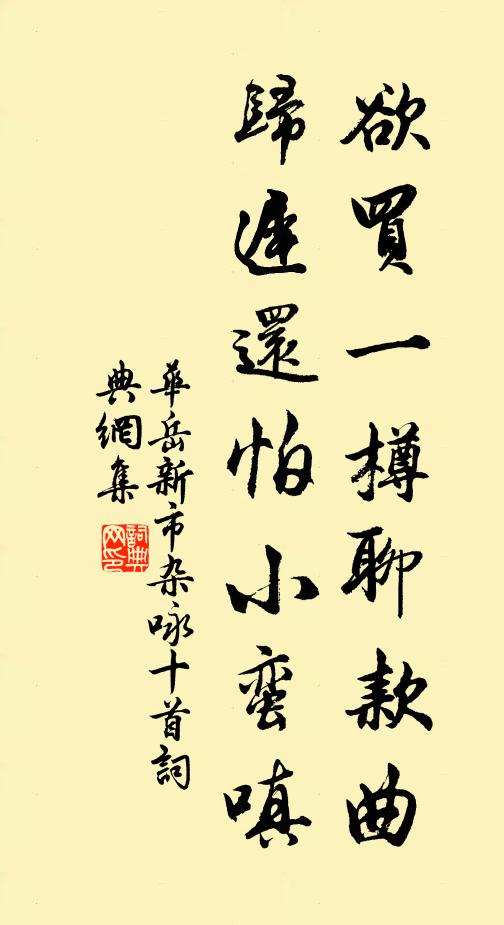 欲買一樽聊款曲
歸遲還怕小蛮嗔
華岳新市杂咏十首詞
典網集
詞典
网印